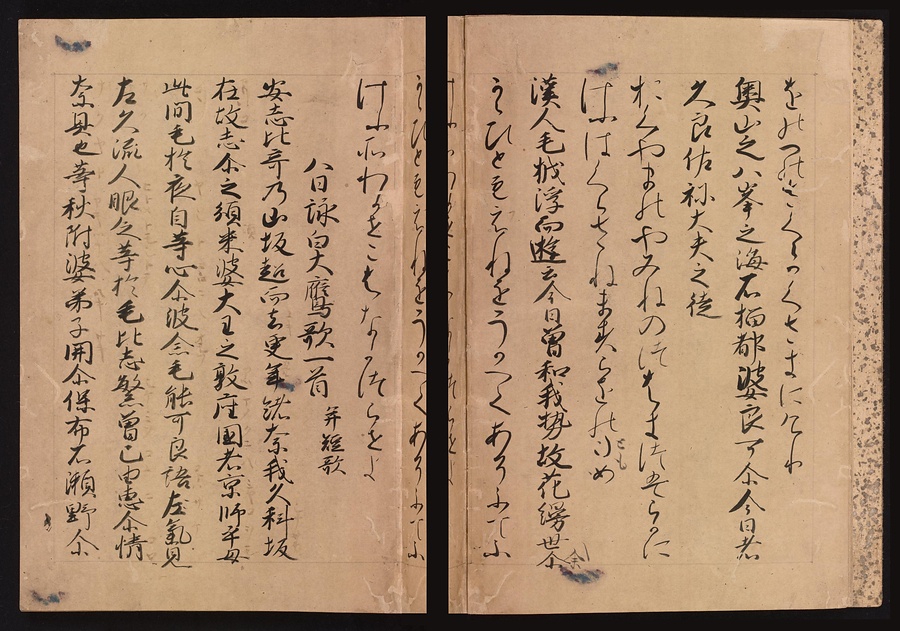 をのへのさくらかくさきにけり
奥山之八峯之海石榴都婆良可尓今日者
久良佐祢大夫之徒
おくやまのやみねのつはきつはらかに
けふはくらさねますらをのとも
漢人毛栰浮而遊云今日曽和我勢故花縵世余
からひともふねをうかへてあそふてふ
けふそわかせこはなかつらせよ
八日詠白大鷹歌一首 并短歌
安志比奇乃山坂超而去更年緒奈我久科坂
在故志尓之須米婆大王之敷座國者京師乎母
此間毛於夜自等心尓波念毛能可良語左氣見
左久流人眼乏等於毛比志繁曽己由恵尓情
奈具也等秋附婆芽子開尓保布石瀬野尓